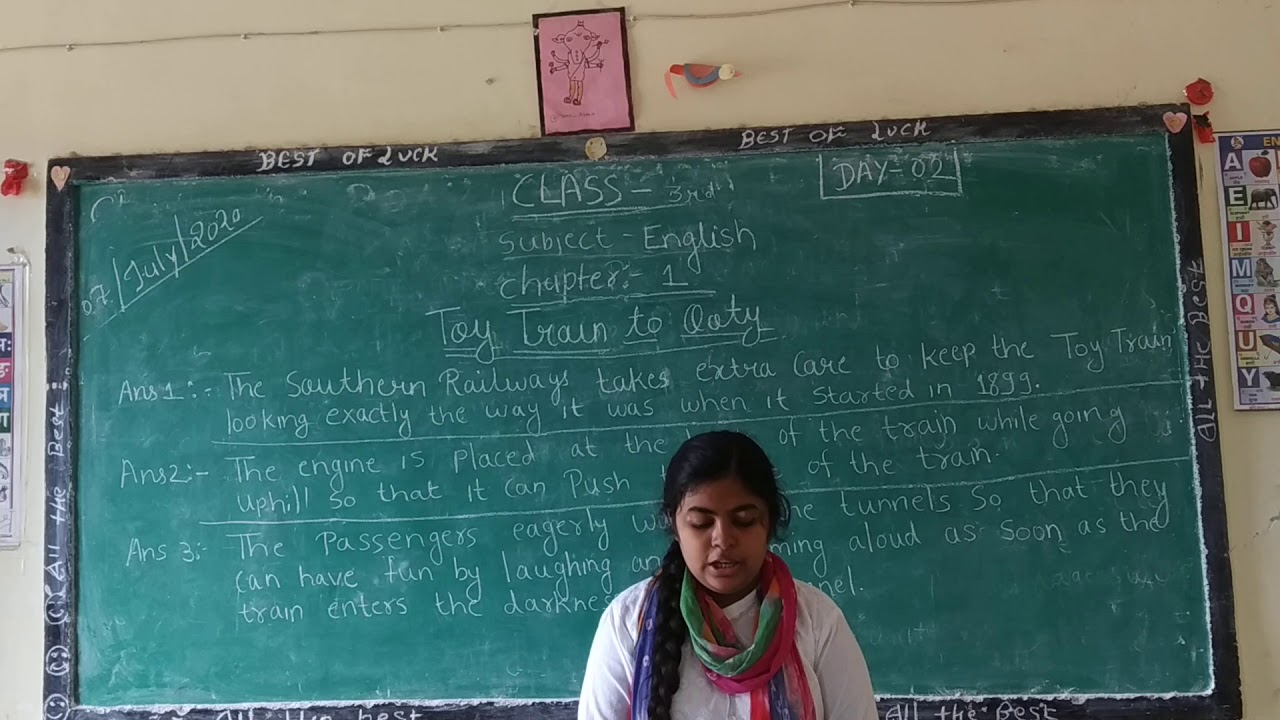 BEST OF LUCK
BEST OF LUCK
07/July/2020
CLASS - 3rd
DAY-02
Subject - English
Chapter:- 1
Toy Train to Ooty
Ans 1:- The Southern Railways takes extra care to keep the Toy Train
looking exactly the way it was when it started in 1899.
Ans 2:- The engine is placed at the of the train while going
Uphill so that it can Push of the train.
Ans 3:- The Passengers eagerly tunnels so that they
can have fun by laughing aloud as soon as the
train enters the
All the Best
All the Best
All the best
All the Best
EN
A
E
I
M
Q
U
Y